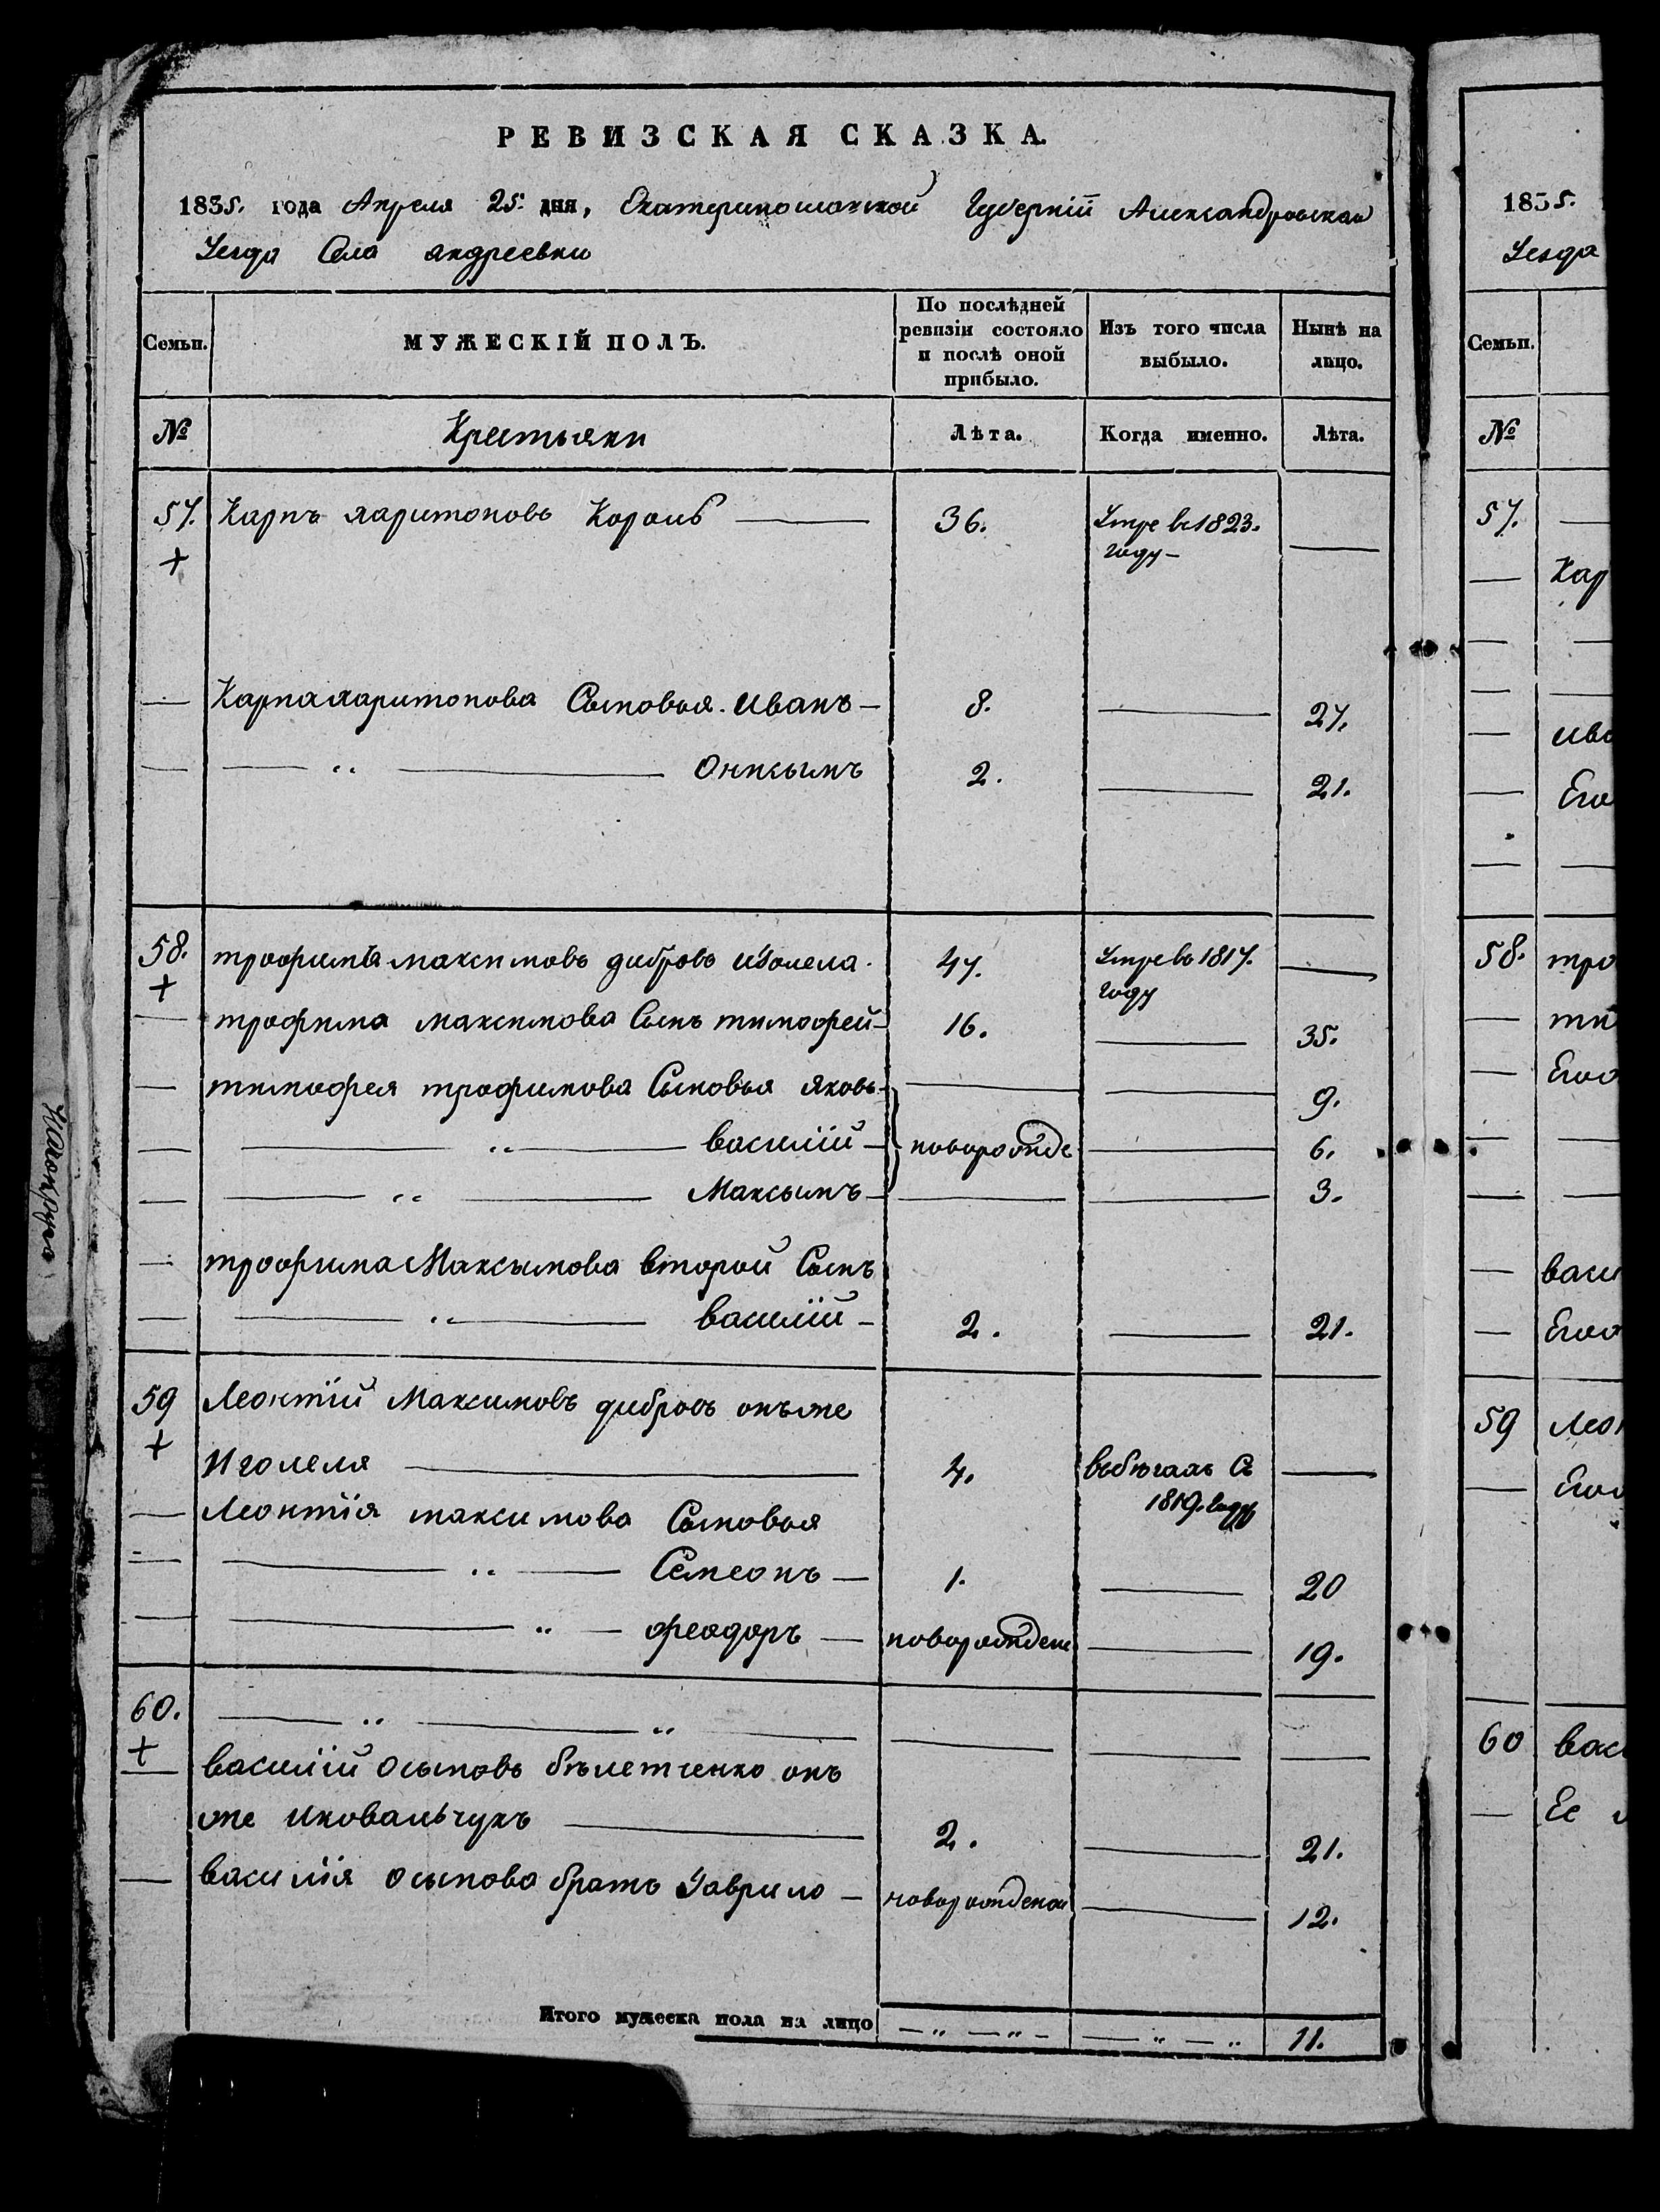 РЕВИЗСКАЯ СКАЗКА.
1835. года Апреля 25: дня, Екатеринославской Губерніи Александровскаго
Уезда Села андреевки
Семьи.
МУЖЕСКІЙ ПОЛЪ.
По послѣдней ревизіи состояло и послѣ оной прибыло.
Изъ того числа выбыло.
Нынѣ на лицо.
№ Крестьяни Лѣта. Когда именно. Лѣта.
57. Карпъ харитоновъ Король — 36. Умре въ 1823. году — —
+
— Карпа харитонова Сыновья. иванъ — 8. — 27.
— — „ — Онисымъ 2. — 21.
58. трофимъ максимовъ дибровъ 47. Умре въ 1817. году —
+
— трофима максимова Сынъ тимофей — 16. — 35.
— тимофея трофимова Сыновья яковъ — — — 9.
— — „ — василій — новорожде — 6.
— — „ — Максымъ — — — 3.
— трофима Максымова второй Сынъ
— — „ — василій — 2. — 21.
59 Леонтій Максимовъ дибровъ онъже
+
Иголеля — 4. въбѣгахъ Съ 1819. году —
— Леонтія максимова Сыновья
— — „ — Семеонъ — 1. — 20
— — „ — феодоръ — новорожден — 19.
60. — „ — „ — — — —
+
— василій осыповъ онъ
же иковальчукъ — 2. — 21.
— василія осыпова братъ Гаврило — новорожденой — 12.
Итого мужеска пола на лицо — „ — „ — — „ — „ 11.
1835.
Уезда
Семьи.
№
57. —
— Кар
— —
— —
— ива
— Его
— —
58. тро
— ти
— Его
— —
— —
— васи
— Его
59 Лео
— Его
60 вас
— Ее